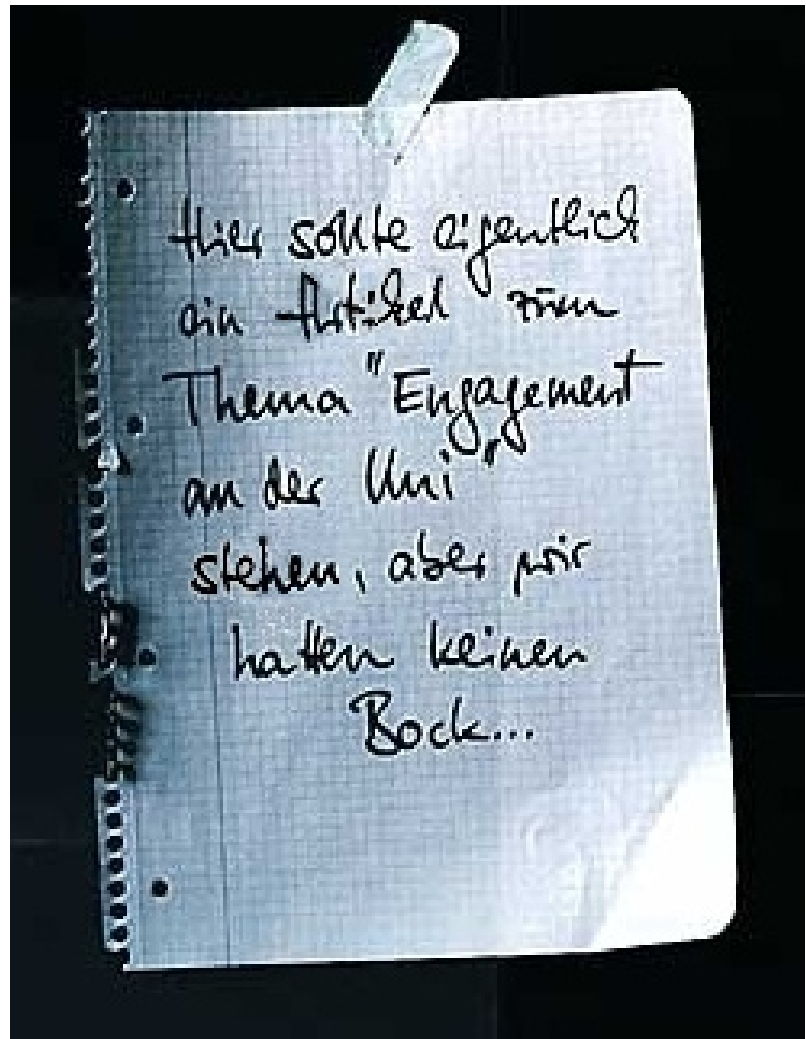 Hier sollte eigentlich
ein Artikel zum
Thema "Engagement
an der Uni"
stehen, aber wir
hatten keinen
Bock...